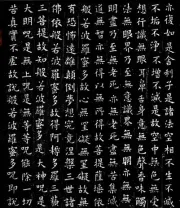 亦復如是舍利子是諸法空相不生不滅
不垢不淨不增不減是故空中無色無受
想行識無眼耳鼻舌身意無色聲香味觸
法無眼界乃至無意識界無無明亦無無
明盡乃至無老死亦無老死盡無苦集滅
道無智亦無得以無所得故菩提薩埵依
般若波羅蜜多故心無罣礙無罣礙故無
有恐怖遠離顛倒夢想究竟涅槃三世諸
佛依般若波羅蜜多故得阿耨多羅三藐
三菩提故知般若波羅蜜多是大神咒是
大明咒是無上咒是無等等咒能除一切
苦真實不虛故說般若波羅蜜多咒即說